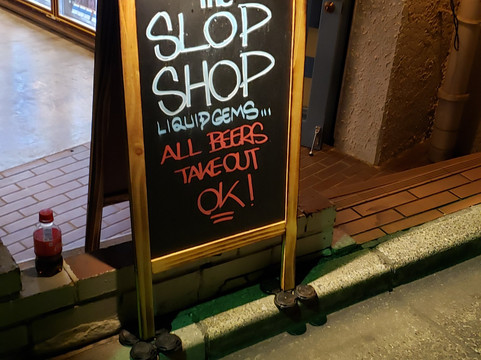 The
SLOP
SHOP
LIQUID GEMS...
ALL BEERS
TAKE-OUT
OK!